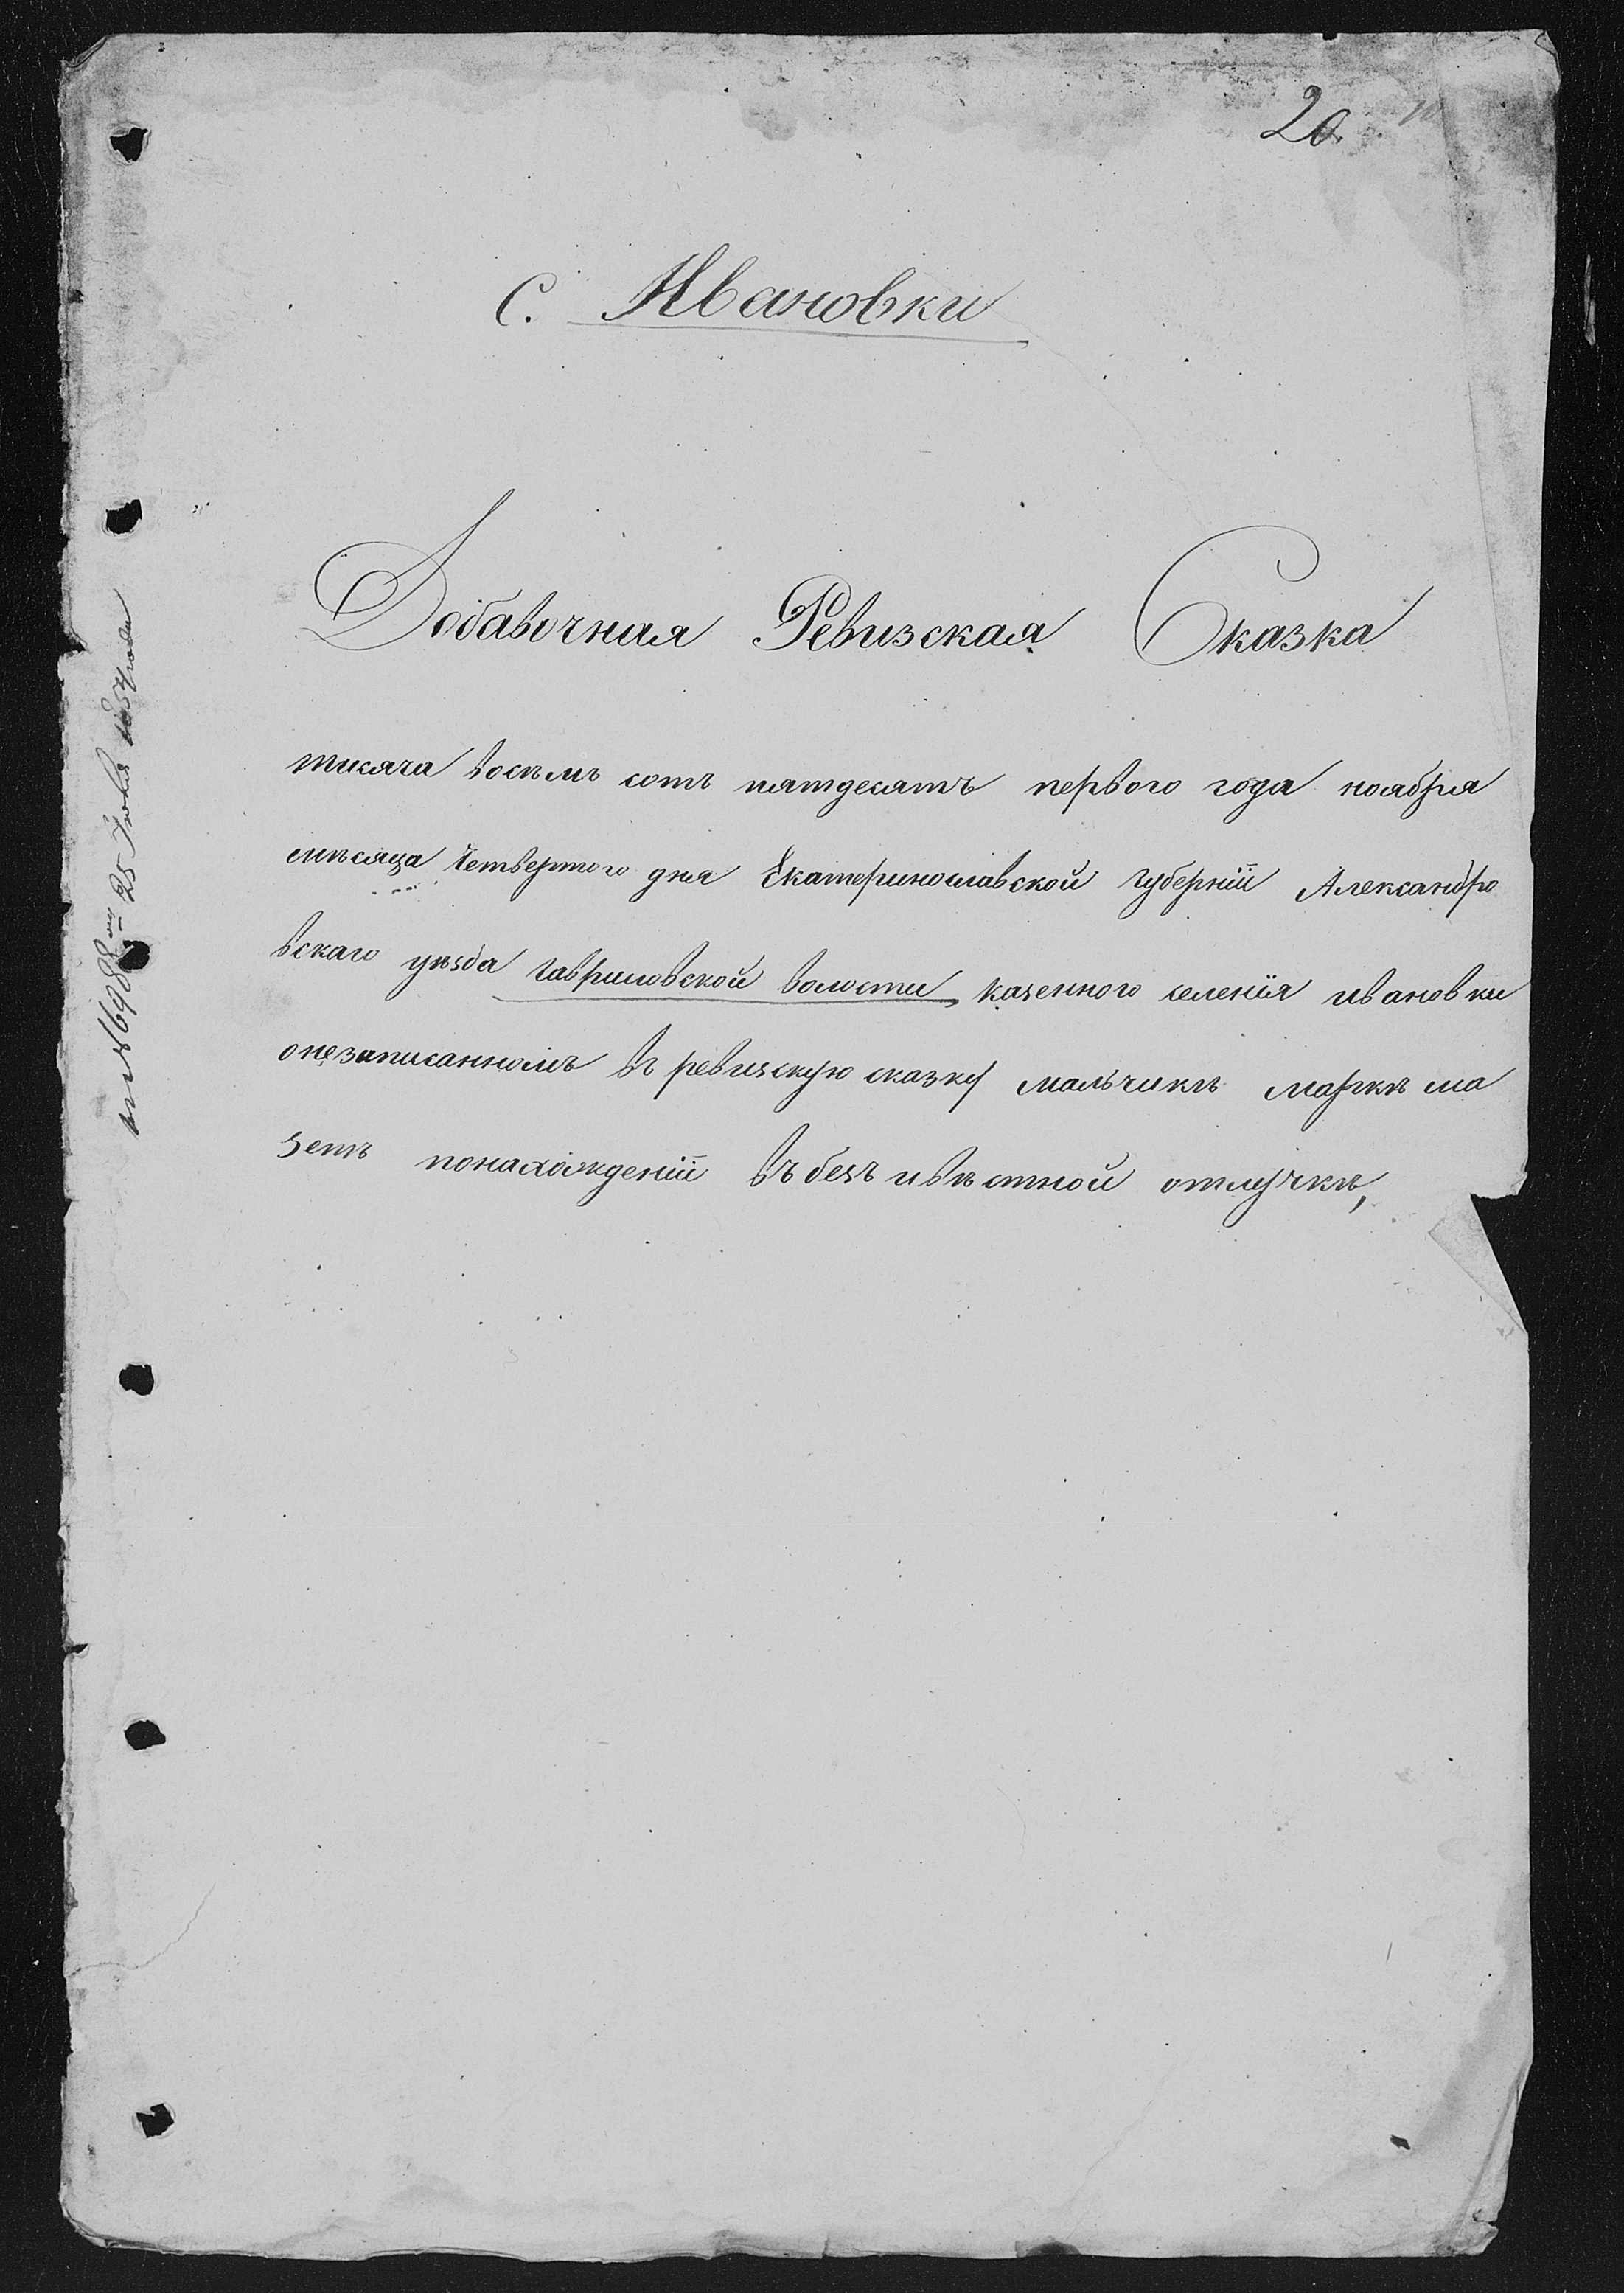 20.
с. Ивановки
Добавочная Ревизская Сказка
тисяча восемъ сотъ пятдесятъ первого года ноября
мѣсяца Четвертого дня Екатеринославской Губерніи Александро
вскаго уѣзда Гавриловской волости казенного селенія ивановки
онезаписанномъ въ ревизскую сказку мальчикѣ маркѣ ма
зетъ понахожденіи въ безъ ивѣстной отлучкѣ,
25 Іюля 1854 года